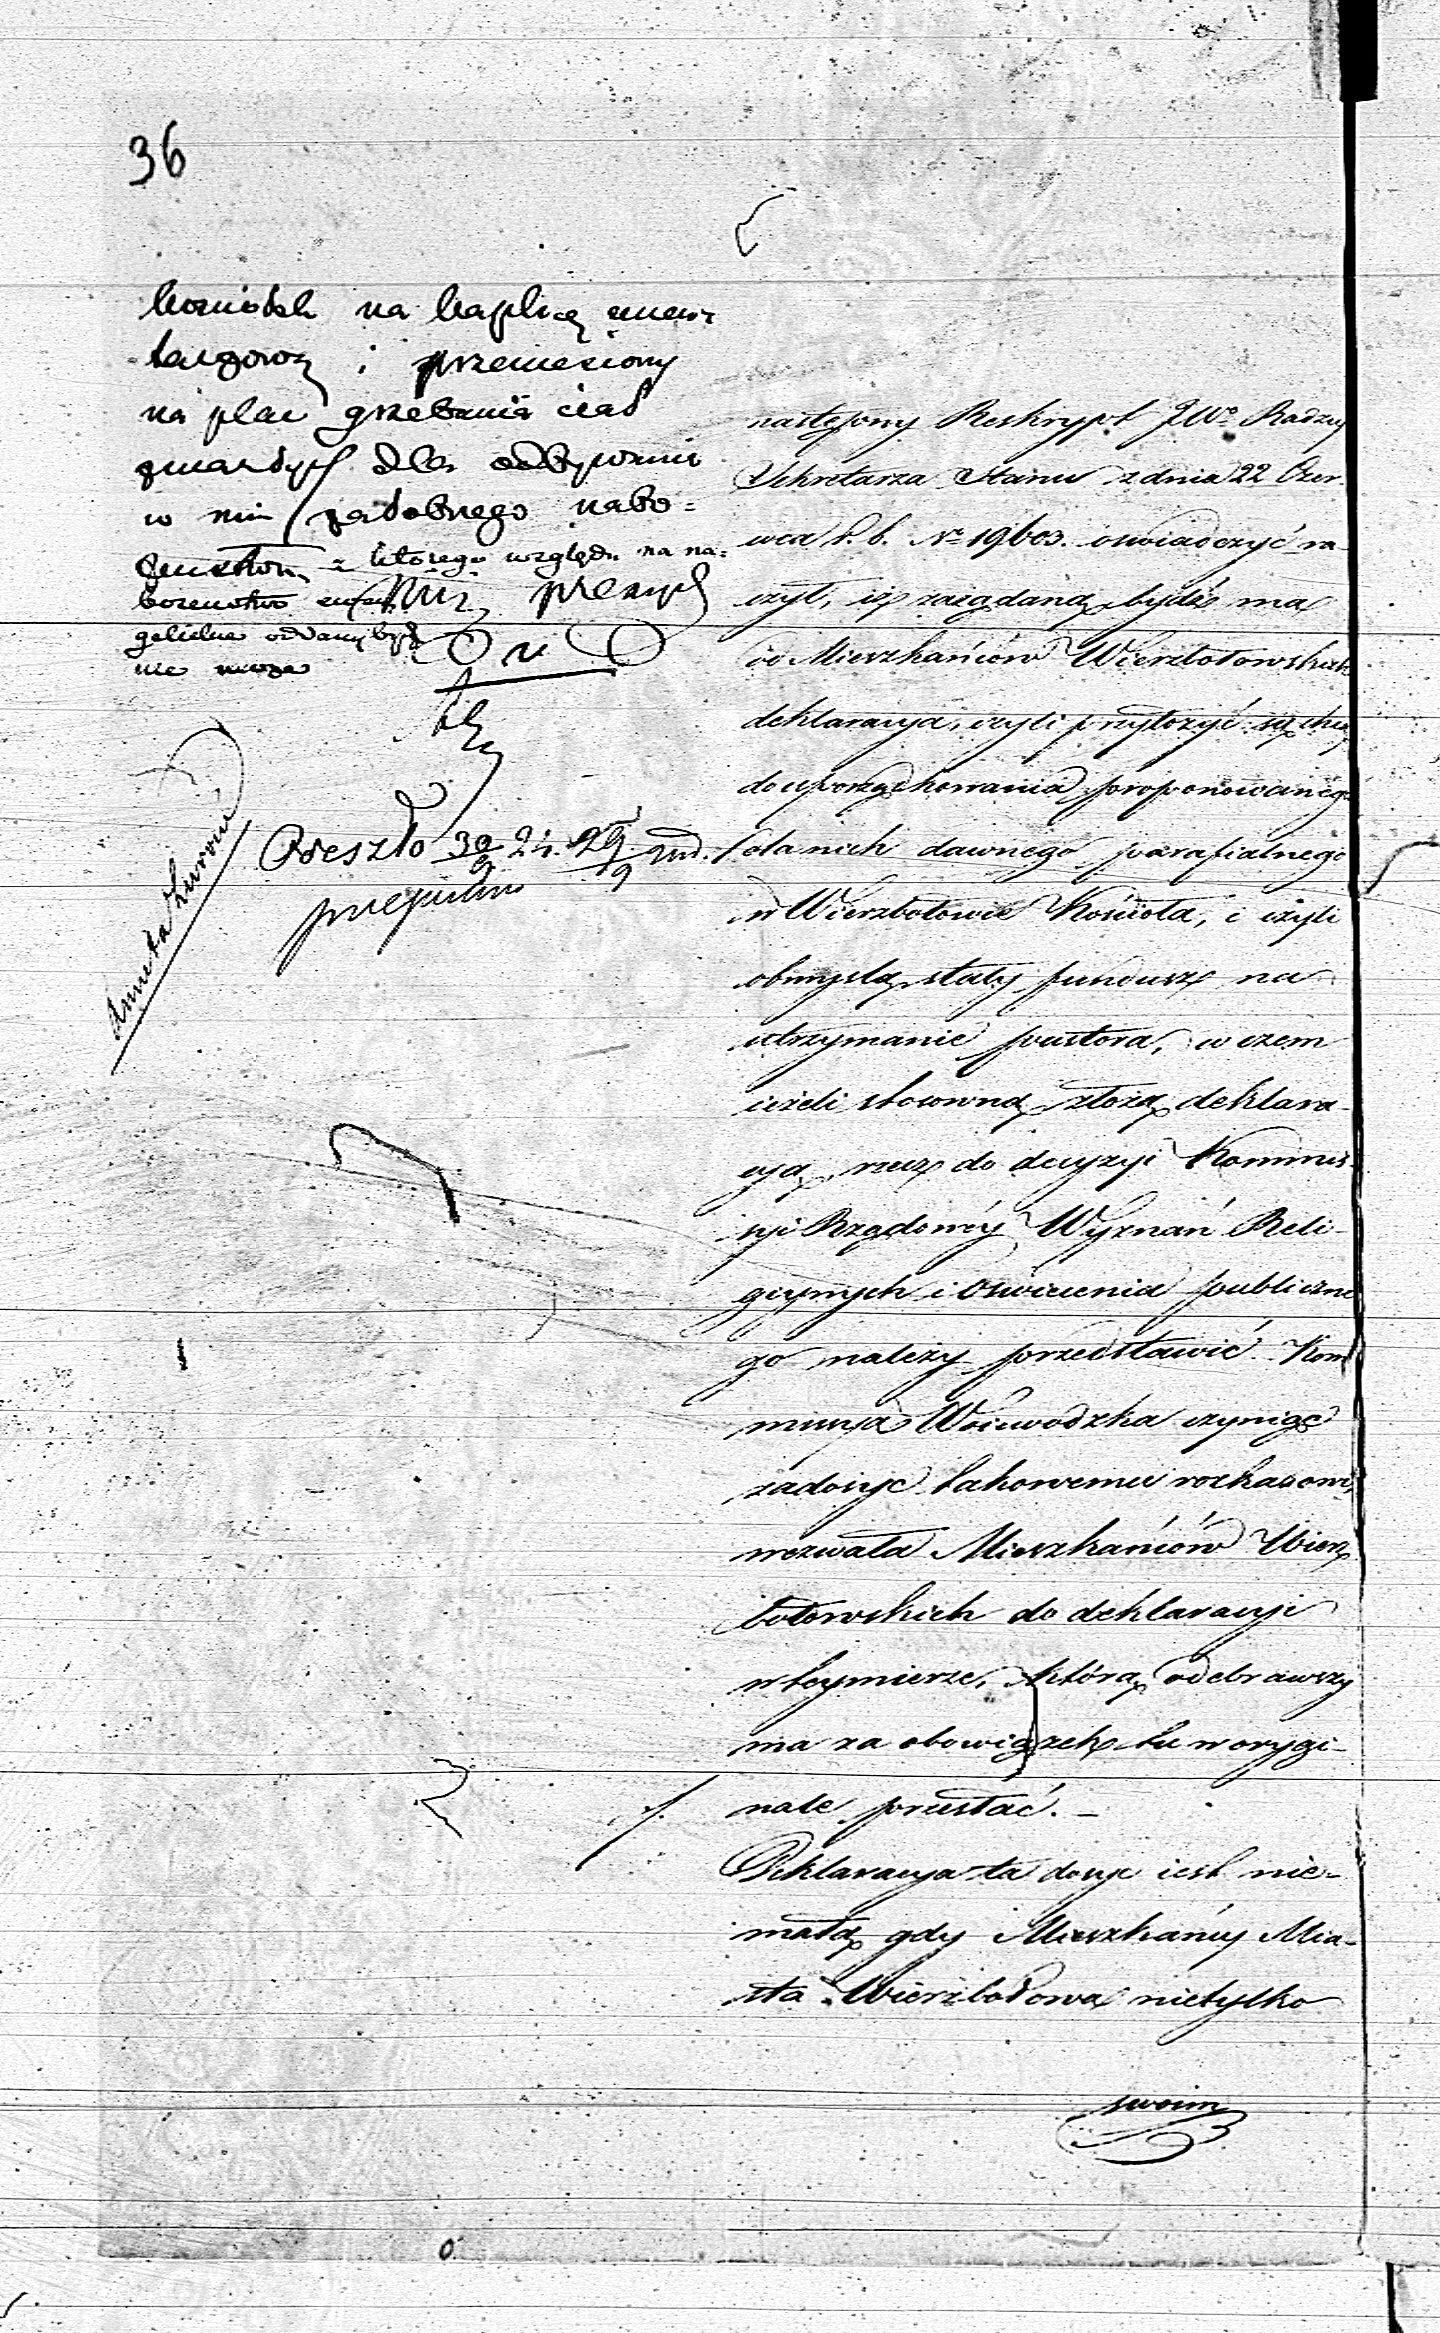 36
kościołek na kaplicę cmen-
tarzową i przeniesiony
na plac grzebania ciał
zmarłych dla odbywania
w nim żałobnego nabo=
żeństwa, z którego względu na na=
bożeństwo ewan
gelickie oddanym być
nie może
Weszło 30/9 24.
następny Reskrypt JWo Radzcy
Sekretarza Stanu z dnia 22 Czer-
wca r. b. No 19603. oswiadczyć ra-
czył, iż zażądaną bydź ma
od Mieszkańców Wierzbołowskich
deklaracya, czyli przyłożyć się chcą
do uporządkowania proponowanego
dla nich dawnego parafialnego
w Wierzbołowie Kościoła, i czyli
obmyślą stały fundusz na
utrzymanie pastora, w czem
ieżeli stosowną złożą deklara-
cyą, rzecz do decyzyi Kommis-
syi Rządowéy Wyznań Reli-
giynych i Oświecenia publiczne
go należy przedstawić. Kom
missya Woiewodzka czyniąc
zadosyć takowemu rozkazowi,
wezwała Mieszkańców Wierz
bołowskich do deklaracyi
w teymierze, którą odebrawszy
ma za obowiązek tu w orygi-
nale przesłać. –
Deklaracya ta dosyć iest nie-
małą gdy Mieszkańcy Mia-
sta Wierzbołowa nietylko
swoim